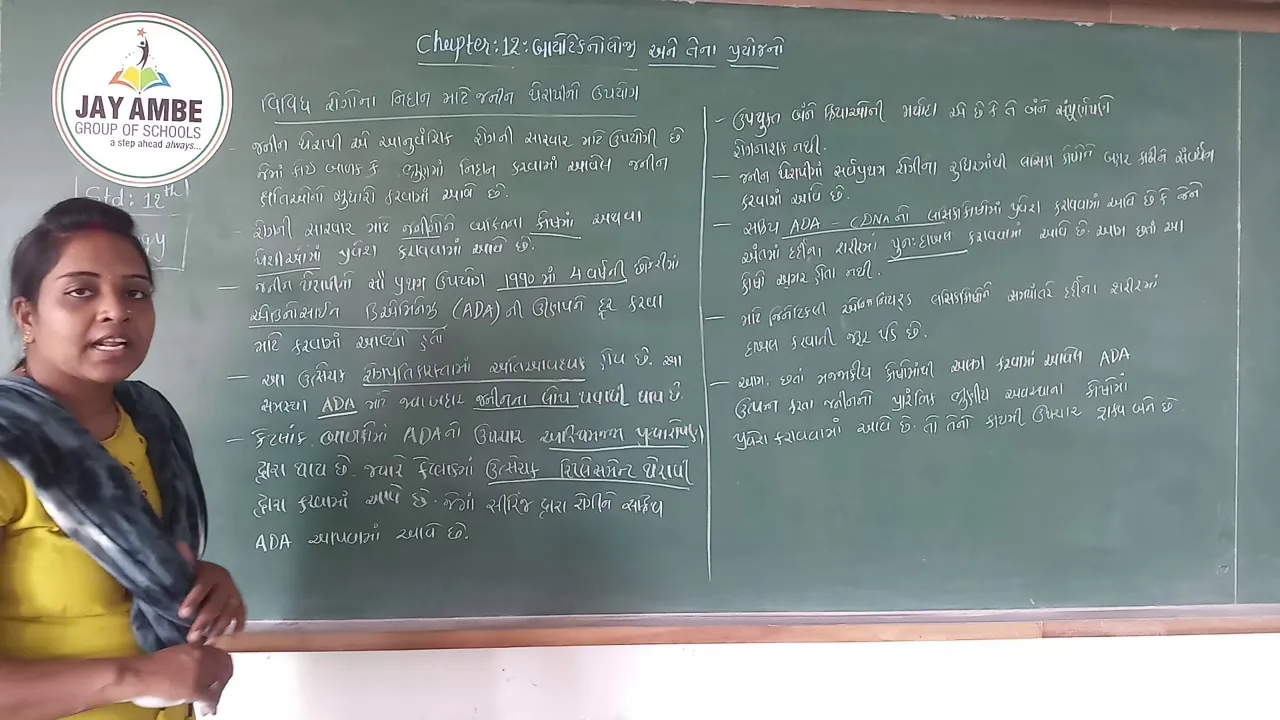 JAY AMBE
GROUP OF SCHOOLS
a step ahead always...
Std: 12th
Chapter: 12: બાયોટેકનોલોજી અને તેના પ્રયોજનો
વિવિધ રોગોના નિદાન માટે જનીન થેરાપીનો ઉપયોગ
- જનીન થેરાપી એ આનુવંશિક રોગની સારવાર માટે ઉપયોગી છે
જેમાં કોઈ બાળક કે ભ્રૂણમાં નિદાન કરવામાં આવેલ જનીન
ક્ષતિઓનો સુધારો કરવામાં આવે છે.
- રોગની સારવાર માટે જનીનોને વ્યક્તિના કોષોમાં અથવા
પેશીઓમાં પ્રવેશ કરાવવામાં આવે છે.
- જનીન થેરાપીનો સૌ પ્રથમ ઉપયોગ ૧૯૯૦ માં 4 વર્ષની છોકરીમાં
એડીનોસાઈન ડિએમિનેઝ (ADA) ની ઊણપને દૂર કરવા
માટે કરવામાં આવ્યો હતો
- આ ઉત્સેચક રોગપ્રતિકારકતામાં અતિઆવશ્યક હોય છે. આ
સમસ્યા ADA માટે જવાબદાર જનીનના લોપ થવાથી થાય છે.
- કેટલાંક બાળકોમાં ADAનો ઉપચાર અસ્થિમજ્જા પ્રત્યારોપણ
દ્વારા થાય છે. જ્યારે કેટલાકમાં ઉત્સેચક રિપ્લેસમેન્ટ થેરાપી
દ્વારા કરવામાં આવે છે. જેમાં સીરિંજ દ્વારા રોગીને સક્રિય
ADA આપવામાં આવે છે.
- ઉપર્યુક્ત બંને ક્રિયાઓની મર્યાદા એ છે કે તે બંને સંપૂર્ણપણે
રોગનાશક નથી.
- જનીન થેરાપીમાં સર્વપ્રથમ રોગીના રુધિરમાંથી લસિકા કોષોને બહાર કાઢીને સંવર્ધન
કરવામાં આવે છે.
- સક્રિય ADA - CDNA નો લસિકાકોષોમાં પ્રવેશ કરાવવામાં આવે છે કે જેને
અંતમાં દર્દીના શરીરમાં પુન:દાખલ કરાવવામાં આવે છે. આમ છતાં આ
કોષો અમર હોતા નથી.
- માટે જિનેટિકલી એન્જિનિયર્ડ લસિકાકોષોને સમયાંતરે દર્દીના શરીરમાં
દાખલ કરવાની જરૂર પડે છે.
- આમ, છતાં મજ્જાકીય કોષોમાંથી અલગ કરવામાં આવેલ ADA
ઉત્પન્ન કરતા જનીનનો પ્રારંભિક ભ્રૂણીય અવસ્થાના કોષોમાં
પ્રવેશ કરાવવામાં આવે છે. તો તેનો કાયમી ઉપચાર શક્ય બને છે.